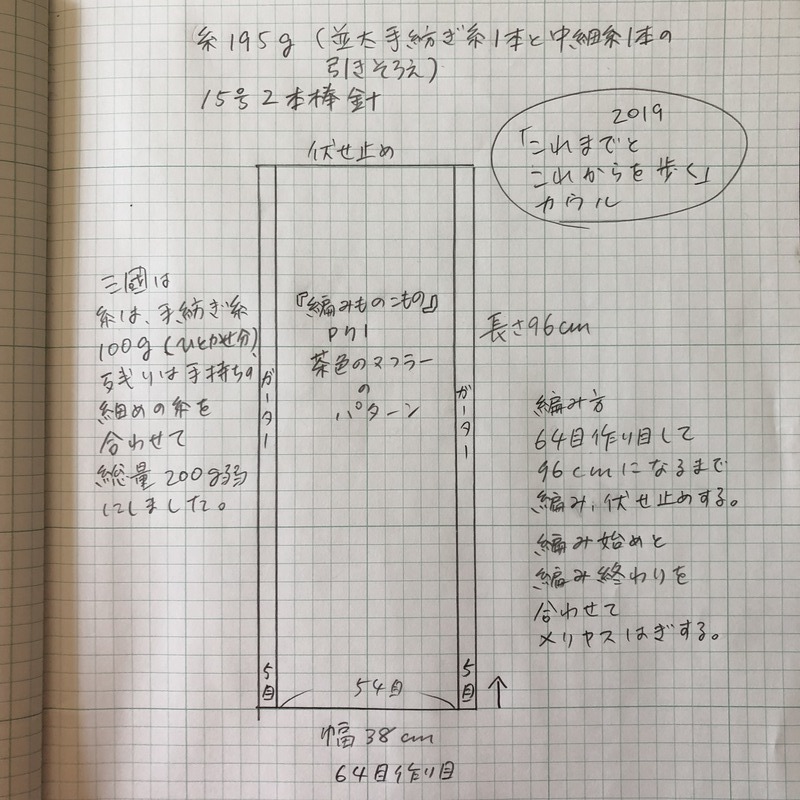 糸195g(並太手紡ぎ糸1本と中細糸1本の
引きそろえ)
15号2本棒針
2019
「これまでと
これからを歩く」
カウル
伏せ止め
三國は
糸は、手紡ぎ糸
100g(ひとかせ分)
残りは手持ちの
細めの糸を
合わせて
総量200g弱
にしました。
ガーター
『編みものこもの』
P71
茶色のマフラー
の
パターン
ガーター
長さ96cm
編み方
64目作り目して
96cmになるまで
編み、伏せ止めする。
編み始めと
編み終わりを
合わせて
メリヤスはぎする。
5目
54目
5目
↑
幅38cm
64目作り目